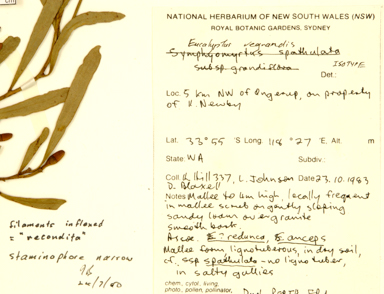 NATIONAL HERBARIUM OF NEW SOUTH WALES (NSW)
ROYAL BOTANIC GARDENS, SYDNEY
Eucalyptus
Symphyomyrtus spathulata
subsp grandiflora
ISOTYPE
Det:
Loc. 5 km NW of Ongerup, on property
of Newbey
Lat. 33° 55 'S Long. 118 ° 27 'E. Alt. m
State: WA Subdiv:
Coll K. Hill 337, L. Johnson Date 23.10.1983
D. Blaxell
Notes Mallee to 4m high, locally frequent
in mallee scrub on gently sloping
sandy loam over granite
smooth bark.
Assoc. E. redunca, E. anceps
Mallee form lignotuberous, in dry soil,
cf. ssp spathulata - no lignotuber,
in salty gullies
chem., cytol, living,
photo, pollen, pollinator,
filaments inflexed
= "recondita"
staminophore narrow